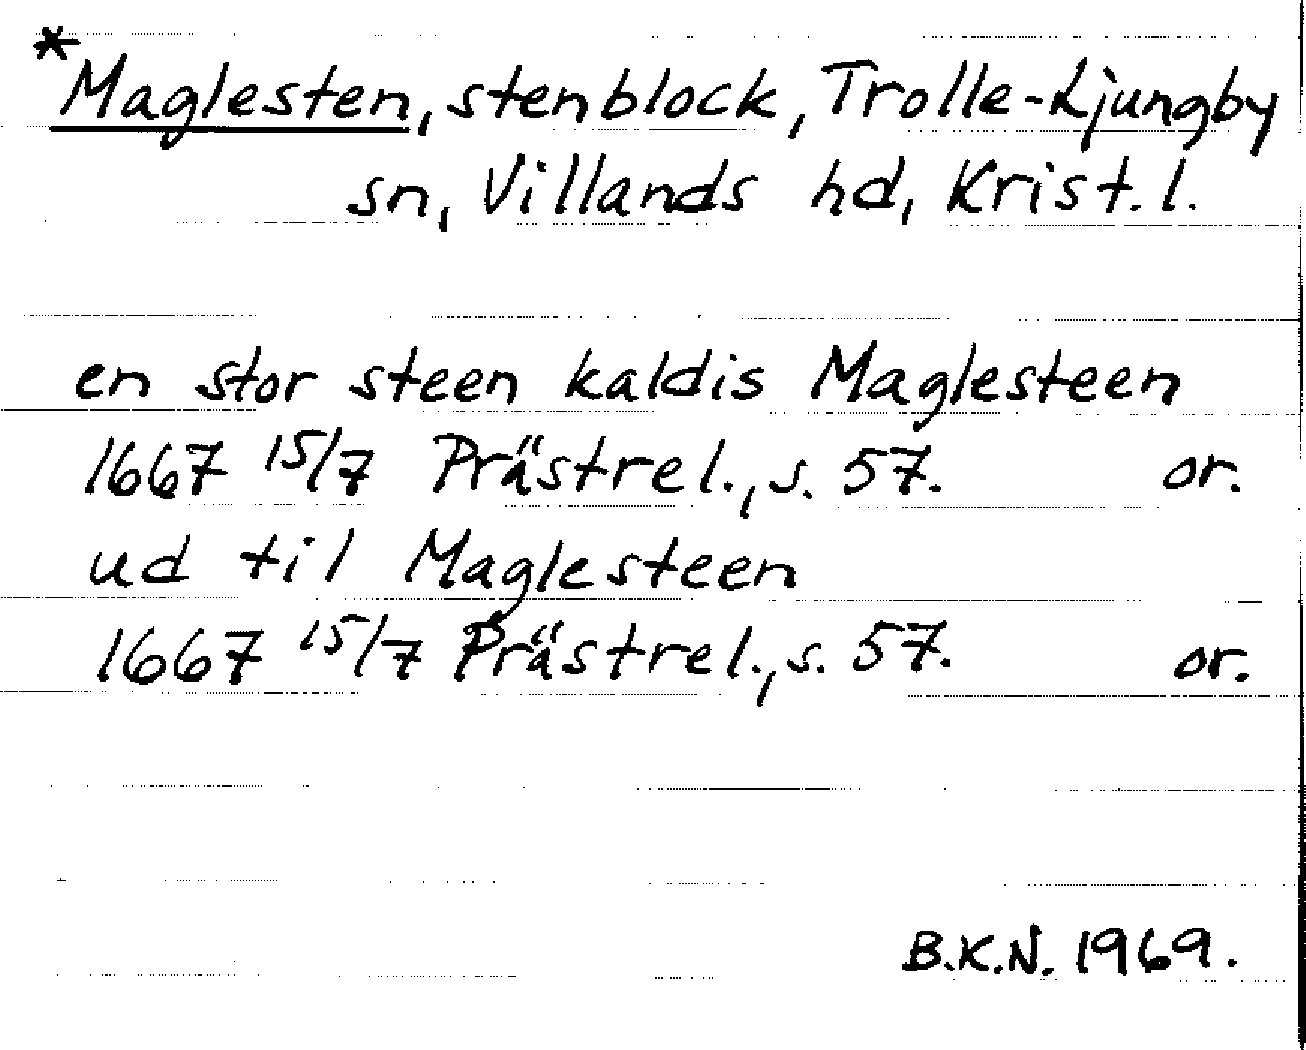 *Maglesten, stenblock, Trolle-Ljungby
sn, Villands hd, Krist. l.
en stor steen kaldis Maglesteen
1667 15/7 Prästrel., s. 57. or.
ud til Maglesteen
1667 15/7 Prästrel., s. 57. or.
B.K.N. 1969.